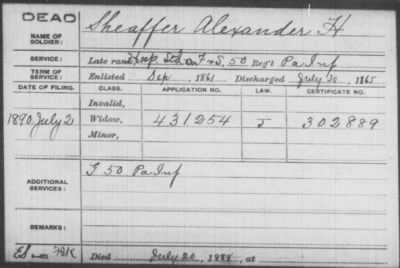 DEAD
NAME OF SOLDIER: Sheaffer Alexander H
SERVICE: Late rank Hosp. Std F & S, 50 Reg't Pa Inf
TERM OF SERVICE: Enlisted Sep , 1861 Discharged July 30, 1865
DATE OF FILING. CLASS. APPLICATION NO. LAW. CERTIFICATE NO.
Invalid,
1890 July 2 Widow, 431254 J 302889
Minor,
ADDITIONAL SERVICES: G 50 Pa Inf
REMARKS:
Died July 20, 1888, at